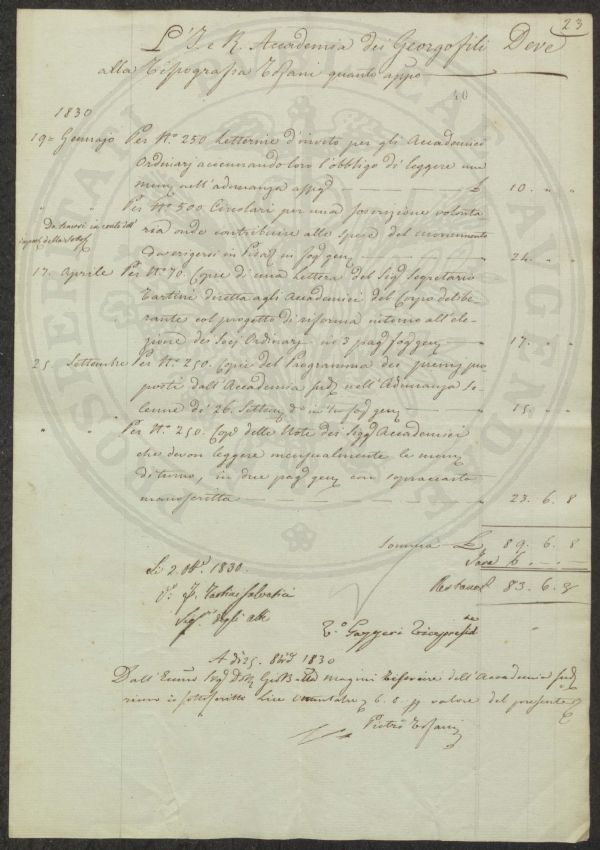 23
L'I. e R. Accademia dei Georgofili Deve
alla Tipografia Tofani quanto app.o
40
1830
19 = Gennajo Per N.o 250. Letterine d'invito per gli Accademici
Ordinarj accennando loro l'obbligo di leggere una
mem.a nell'adunanza £ 10. " "
" " Per N.o 500. Circolari per una soscrizione volonta
ria onde contribuire alle spese del monumento
da erigersi in " 24. " "
17. Aprile Per N.o 70. Copie di una Lettera del Sig.r Segretario
Tartini diretta agli Accademici del Corpo delibe
rante col progetto di riforma intorno all'ele
zione dei Socj Ordinarj in 3 pag. " 17. " "
25. Settembre Per N.o 250. Copie del Programma dei premj pro
posti dall'Accademia sud.a nell'Adunanza so
lenne di 26. " 15. " "
" " Per N.o 250. Copie delle Note dei Sigg.i Accademici
che devon leggere mensualmente le mem.e
di turno, in due pag. con sopraccarta
manoscritta " 23. 6. 8
Somma £ 89. 6. 8
Tara 6. " "
Restano £ 83. 6. 8
Li 2. 1830.
Seg.rio degli Atti
V.o Gazzeri Vicepresid.te
A di 25. 1830
Dall' Magini Tesoriere dell'Accademia sud.a
io sottoscritto Lire 6. 8. valore del presente
Pietro Tofani